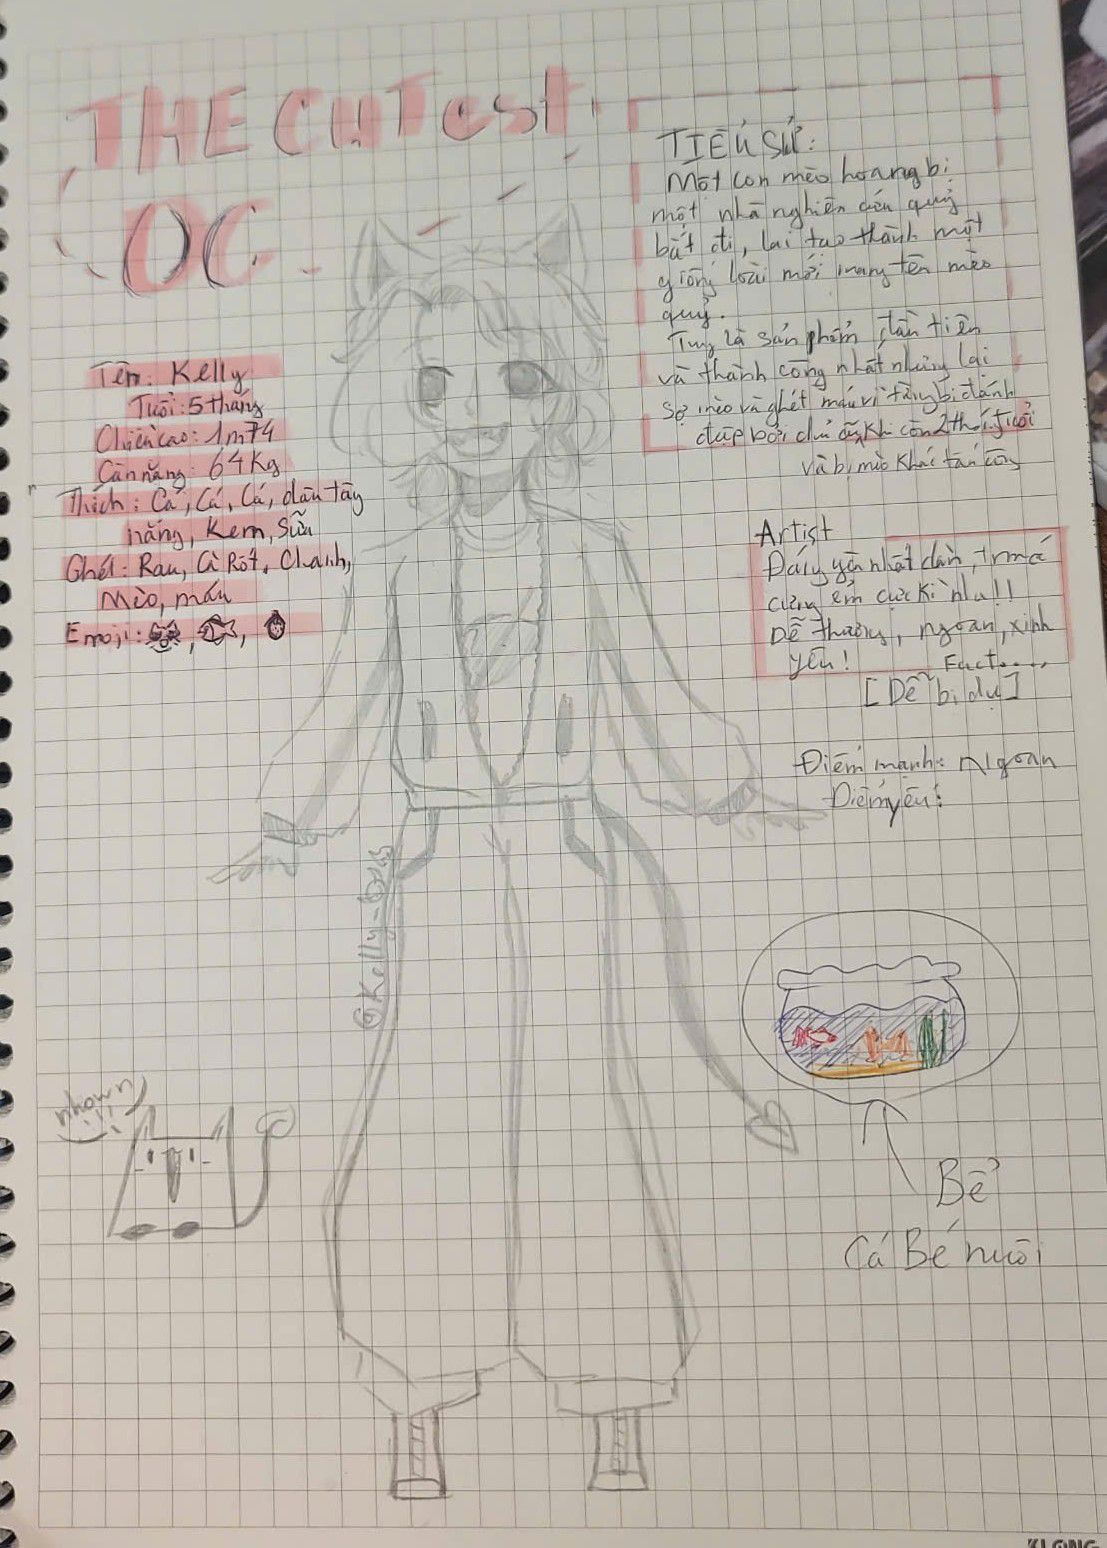 THE CUTest
OC
Tên: Kelly
Tuổi: 5 tháng
Chiều cao: 1m74
Cân nặng: 64Kg
Thích: Cá, Cá, Cá, dâu tây
nắng, Kem, Sữa
Ghét: Rau, Cà Rốt, Chanh,
Mèo, máu
Emoji: , ,
TIỂU SỬ:
Một con mèo hoang bị
một nhà nghiên cứu quỷ
bắt đi, lai tạo thành một
giống loài mới mang tên mèo
quỷ.
Tuy là sản phẩm đầu tiên
và thành công nhất nhưng lại
sợ mèo và ghét máu vì từng bị đánh
đập bởi chủ cũ khi còn 2 tháng tuổi
và bị mèo khác tấn công
Artist
yêu nhất đàn,
cưng ẻm cực kì nha!!
Dễ thương, ngoan, xinh
yêu! Fact.....
[Dễ bị dụ]
Điểm mạnh: Ngoan
Điểm yếu:
@Kelly-
nhown
Bể
Cá Bé nuôi